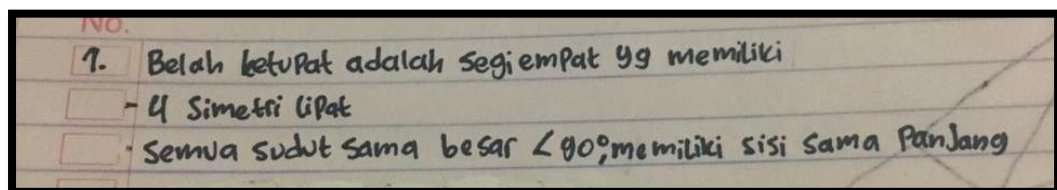 No.
1. Belah ketupat adalah segiempat yg memiliki
- 4 Simetri lipat
- Semua sudut sama besar <90°, memiliki sisi sama Panjang